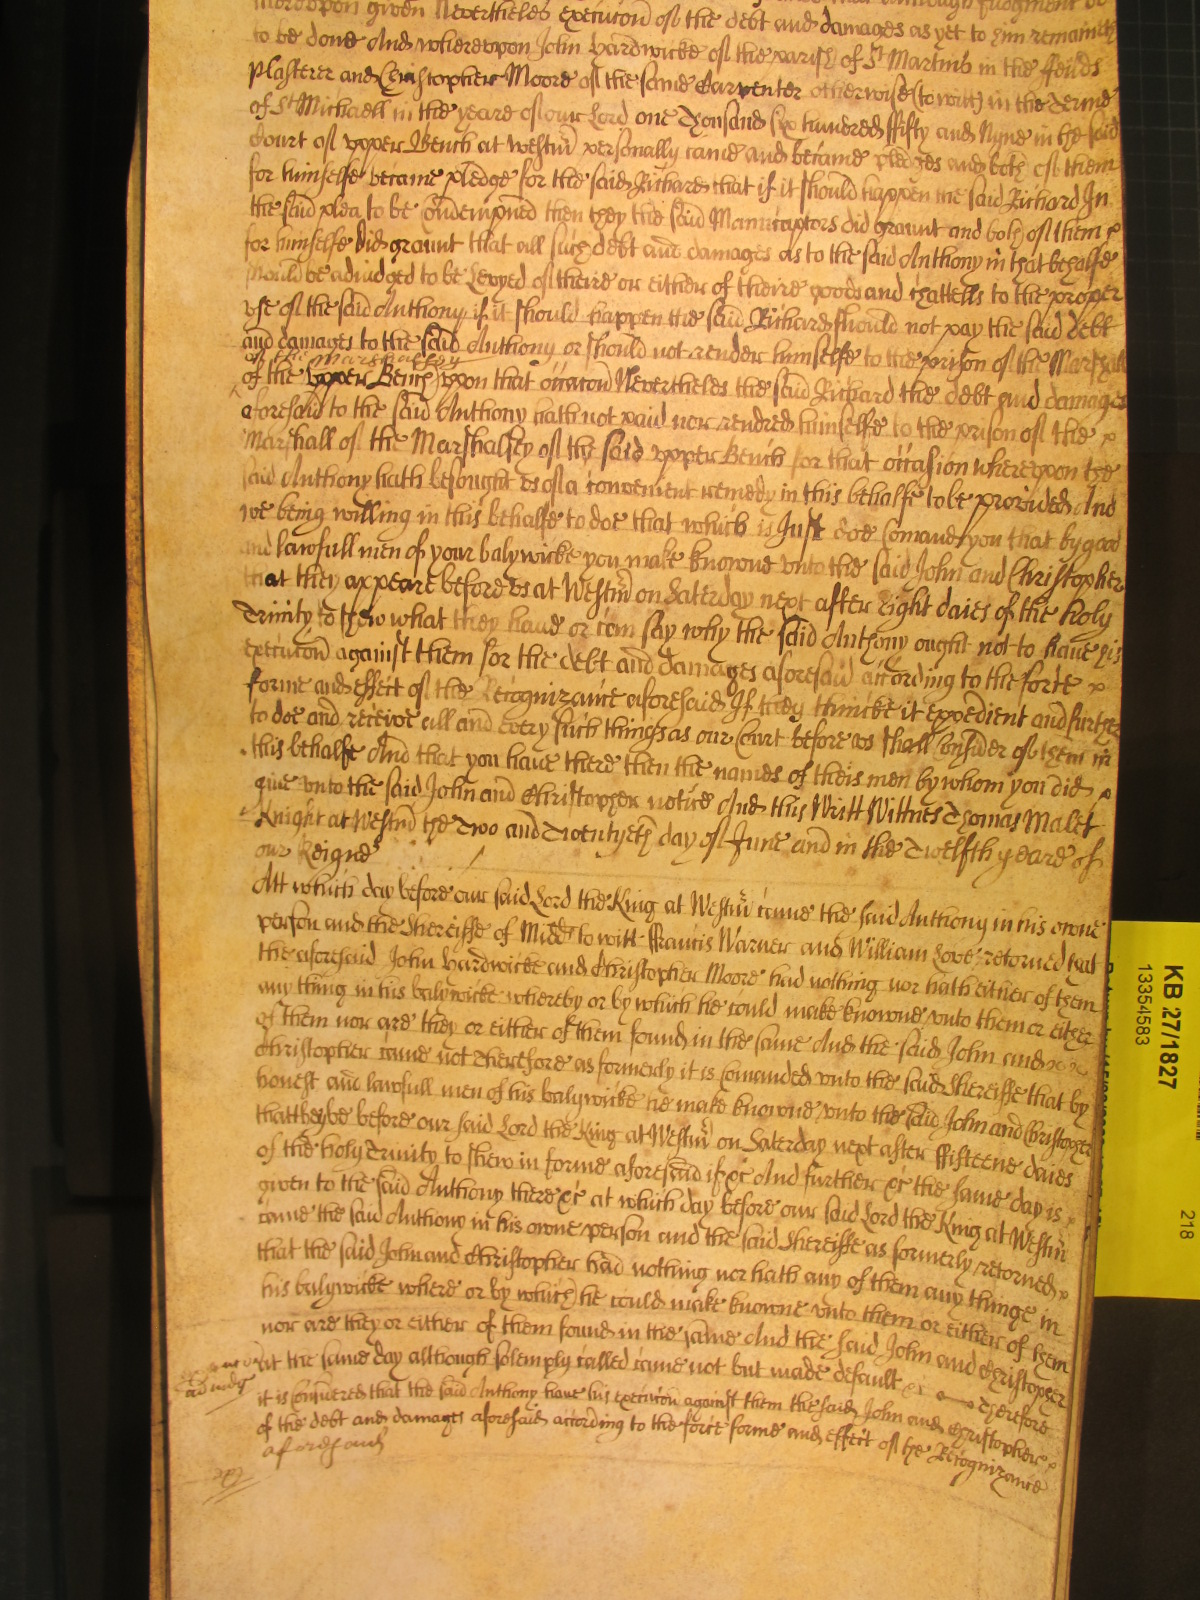 thereupon given Nevertheles execucon of the debt and damages as yet to him remaineth
to be done And whereupon John Hardwicke of the parish of St Martins in the ffeilds
Plasterer and Christopher Moore of the same Carpenter otherwise (to witt) in the Terme
of St Michaell in the yeare of our Lord one Thousand Six hundred ffifty and Nyne in the said
Court of upper Bench at Westm̃ personally came and became pledges and both of them
for himselfe became pledge for the said Richard that if it should happen the said Richard In
the said plea to be Condempned then they the said Manucaptors did graunt and both of them
for himselfe did graunt that all such debt and damages as to the said Anthony in that behalfe
should be adiudged to be Levyed of theire or either of theire goods and Chattells to the proper
use of the said Anthony if it should happen the said Richard should not pay the said debt
and damages to the said Anthony or should not render himselfe to the prison of the Marshall
of the Marshallsey
of the upper Bench upon that occacon Nevertheles the said Richard the debt and damages
aforesaid to the said Anthony hath not paid nor rendred himselfe to the prison of the
Marshall of the Marshalsey of the said upper Bench for that occasion whereupon the
said Anthony hath besought us of a convenient remedy in this behalfe to be provided And
we being willing in this behalfe to doe that which is Just doe Comaund you that by good
and lawfull men of your balywicke you make knowne unto the said John and Christopher
that they appeare before us at Westm̃ on Saterday next after eight daies of the holy
Trinity to shew what they haue or can say why the said Anthony ought not to haue his
execucon against them for the debt and damages aforesaid according to the force
forme and effect of the Recognizance aforesaid If they thincke it expedient and further
to doe and receive all and every such things as our Court before us shall Consider of them in
this behalfe And that you haue there then the names of theis men by whom you did
give unto the said John and Christopher notice And this Writt Wittnes Thomas Malet
Knight at Westm̃ the Two and Twentyeth day of June and in the Twelfth yeare of
our Reigne
Att which day before our said Lord the King at Westm̃ came the said Anthony in his owne
person and the Shereiffe of Midd to witt ffrancis Warner and William Love retorned that
the aforesaid John Hardwicke and Christopher Moore had nothing nor hath either of them
any thing in his balywicke whereby or by which he could make knowne unto them or either
of them nor are they or either of them found in the same And the said John and
Christopher came not Therefore as formerly it is Comanded unto the said Shereiffe that by
honest and lawfull men of his balywicke he make knowne unto the said John and Christopher
that they be before our said Lord the King at Westm̃ on Saterday next after ffifteene daies
of the holy Trinity to shew in forme aforesaid if &c And further &c the same day is
given to the said Anthony there &c at which day before our said Lord the King at Westm̃
came the said Anthony in his owne person and the said Shereiffe as formerly retorned
that the said John and Christopher had nothing nor hath any of them any thinge in
his balywicke where or by which he could make knowne unto them or either of them
nor are they or either of them found in the same And the said John and Christopher
at the same day although solemply called came not but made default Therefore
it is Considered that the said Anthony haue his execucon against them the said John and Christopher
of the debt and damages aforesaid according to the force forme and effect of the Recognizance
aforesaid
KB 27/1827
13354583
218